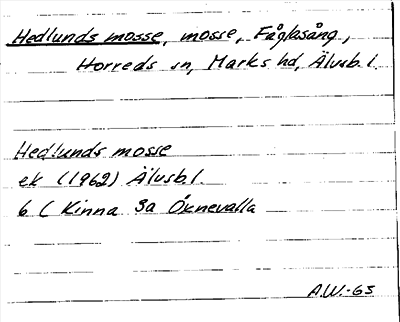 Hedlunds mosse, mosse, Fåglasång,
Horreds sn, Marks hd, Älvsb. l.
Hedlunds mosse
ek (1962) Älvsb. l.
6 C Kinna 3a Öxnevalla
A.W.-65